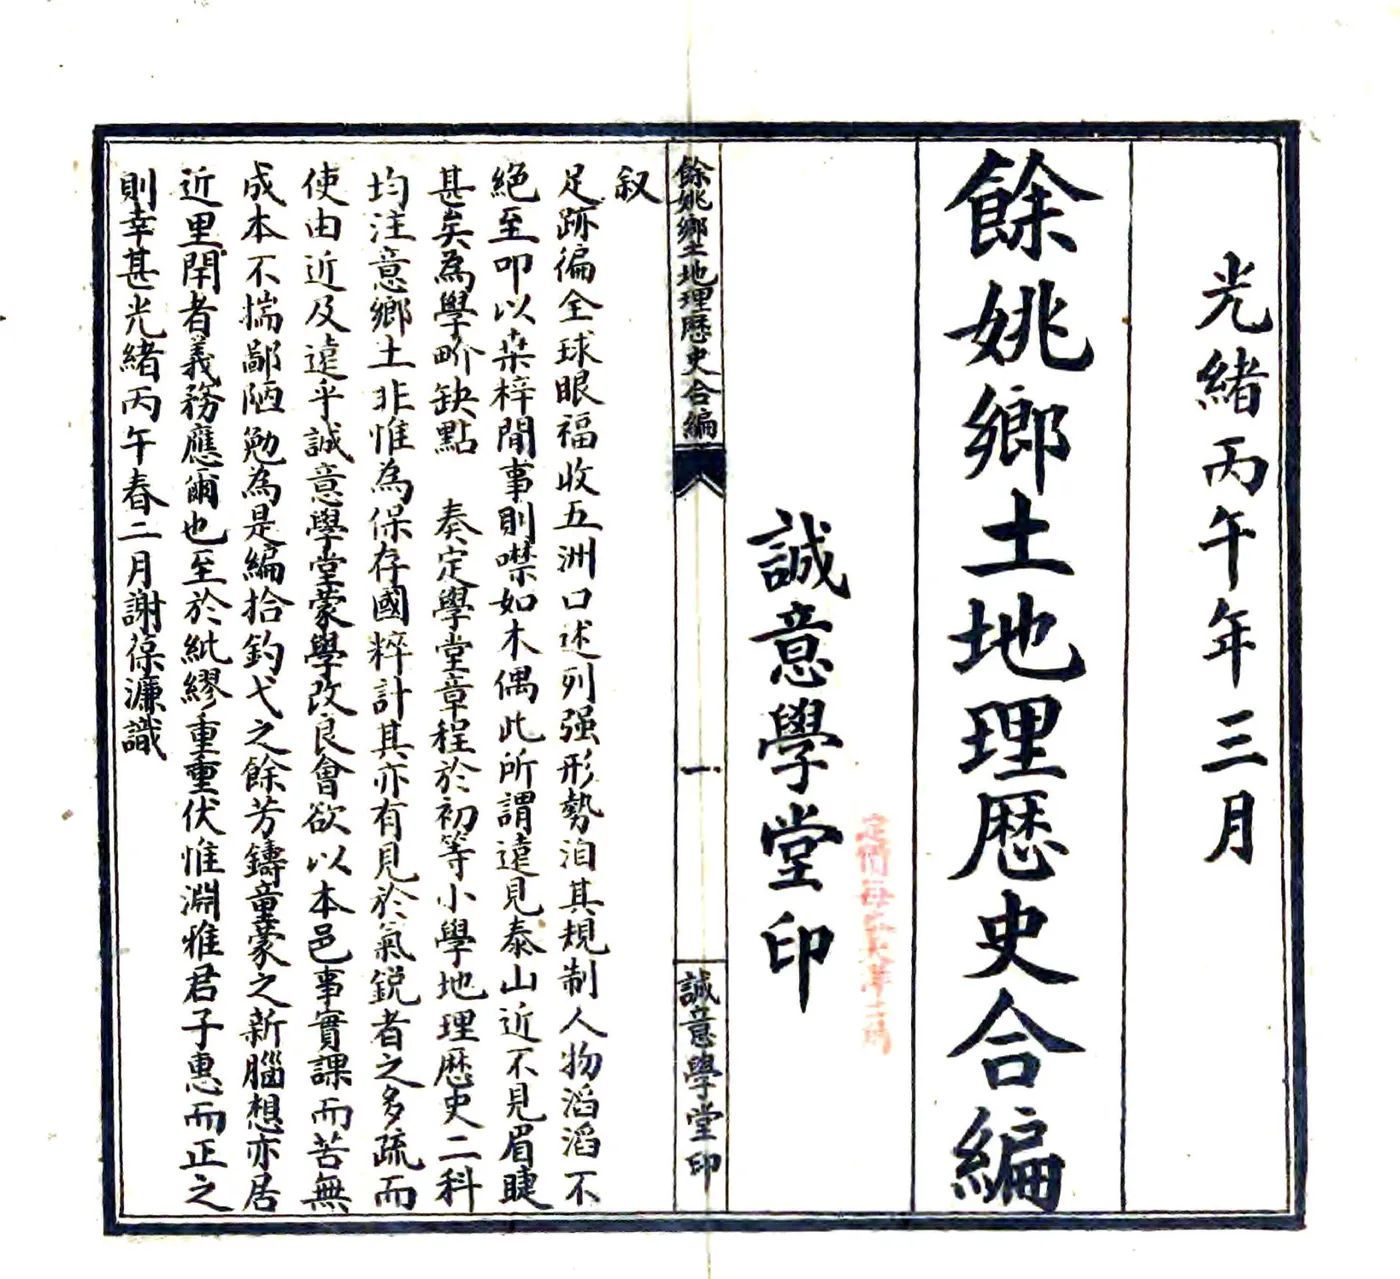 光緒丙午年三月
餘姚鄉土地理歷史合編
誠意學堂印
定價每本大洋二角
餘姚鄉土地理歷史合編
一
誠意學堂印
叙
足跡徧全球眼福收五洲口述列强形勢洎其規制人物滔滔不
絕至叩以桒梓間事則噤如木偶此所謂遠見泰山近不見眉睫
甚矣為學畍缺點 奏定學堂章程於初等小學地理歷史二科
均注意鄉土非惟為保存國粹計其亦有見於氣銳者之多疏而
使由近及遠乎誠意學堂蒙學改良會欲以本邑事實課而苦無
成本不揣鄙陋勉為是編拾釣弋之餘芳鑄童蒙之新腦想亦居
近里閈者義務應爾也至於紕繆重重伏惟淵雅君子惠而正之
則幸甚光緒丙午春二月謝葆濂識